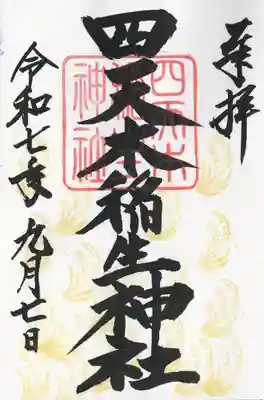 奉拝
四天木稲生神社
四天木
神社
令和七年九月七日